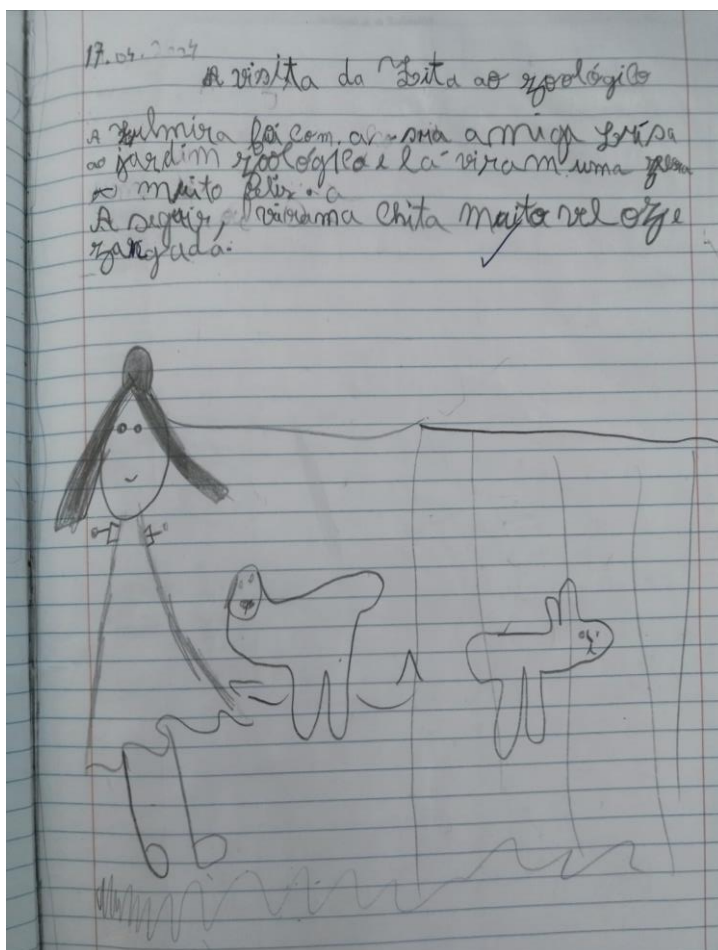 17.04.2024
A visita da Zita ao zoológico
A Zulmira foi com a sua amiga
ao jardim zoológico e lá viram uma
muito feliz. a
A seguir, virama Chita muito vel oz e
zangada.